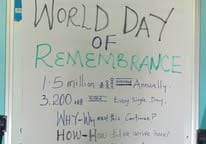 WORLD DAY
OF
REMEMBRANCE
1.5 million Annually.
3,200 Every Single Day.
WHY-Why must this Continue?
HOW-How did we arrive here?